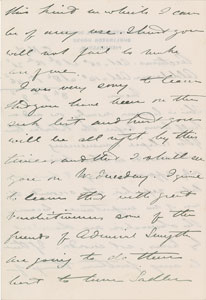 this kind in which I can
be of any use. I trust you
will not fail to make
use of me.
I was very sorry to learn
that you have been on the
sick list and trust you
will be all right by this
time, and that I shall see
you on Tuesday. I grieve
to learn that with great
some of the
friends of Admiral
are going to do their
best to